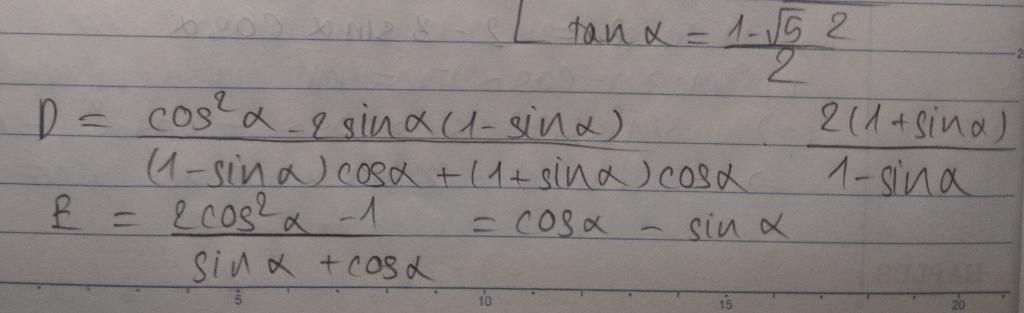 [ tan α = (1-√5)/2 2
D = (cos²α - 2 sinα(1 - sinα))/((1-sinα)cosα + (1+sinα)cosα) 2(1+sinα)/(1-sinα)
E = (2cos²α - 1)/(sinα + cosα) = cosα - sinα
5 10 15 20